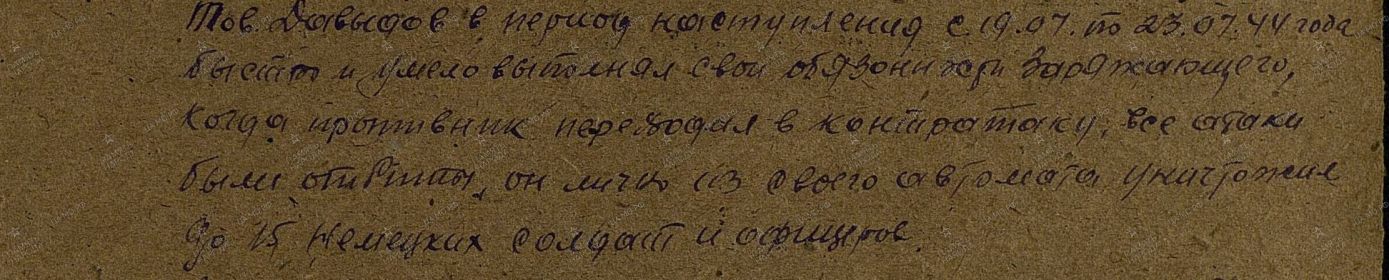 Тов. Давыдов в период наступления с 19.07. по 23.07.44 года
быстро и умело выполнял свои обязонности Заряжающего,
Когда противник переходил в контратаку, все атаки
были отбиты, он лично из своего автомата уничтожил
до 15 немецких солдат и офицеров.